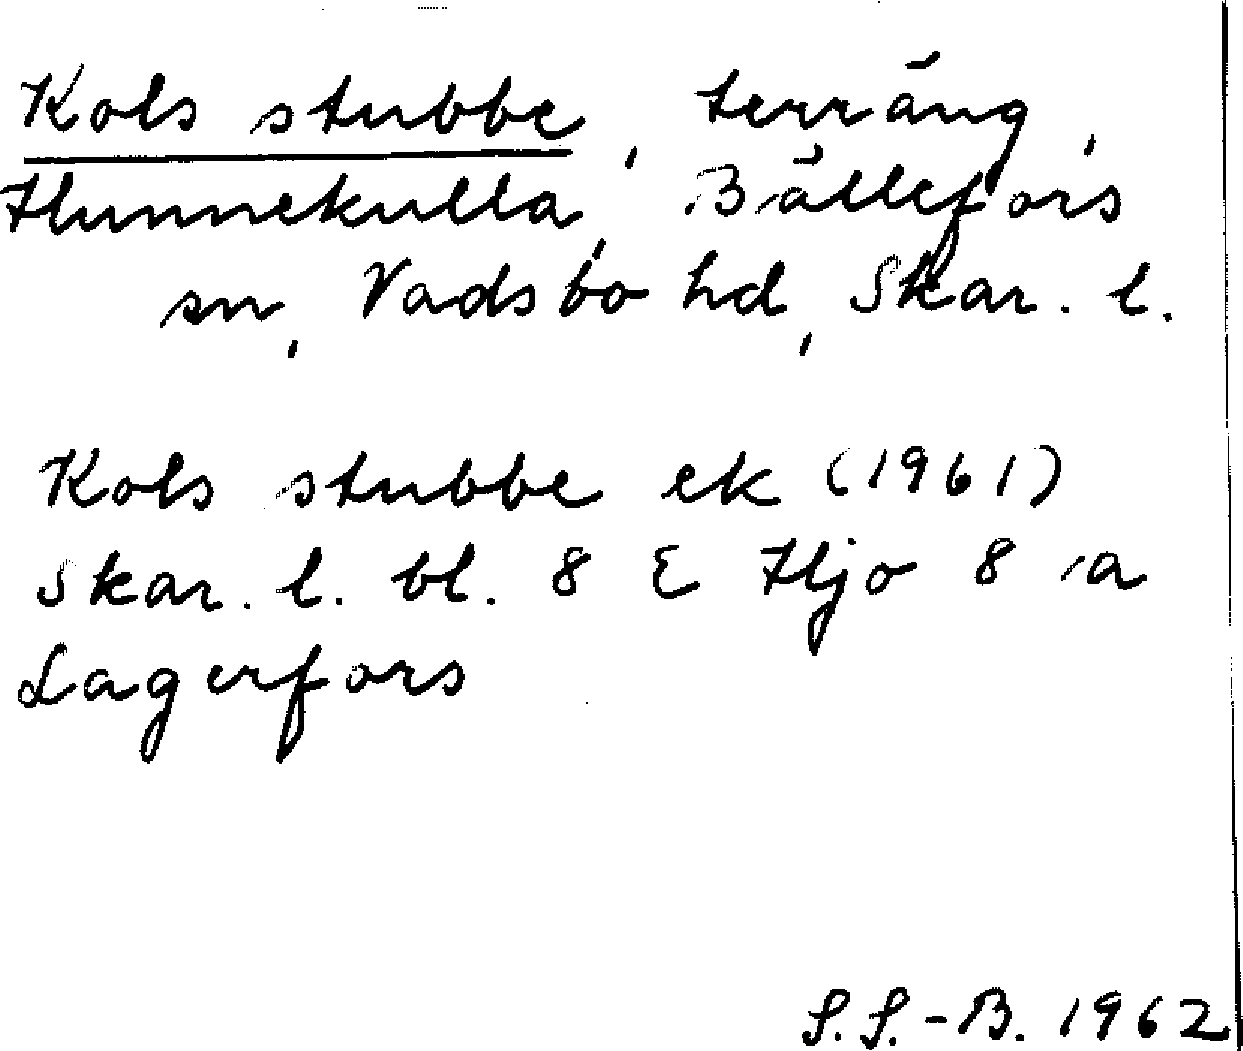 Kols stubbe, terräng,
Hunnekulla, Bällefors
sn, Vadsbo hd, Skar. l.
Kols stubbe ek (1961)
Skar. l. bl. 8 E Hjo 8 a
Lagerfors
S.S.-B. 1962